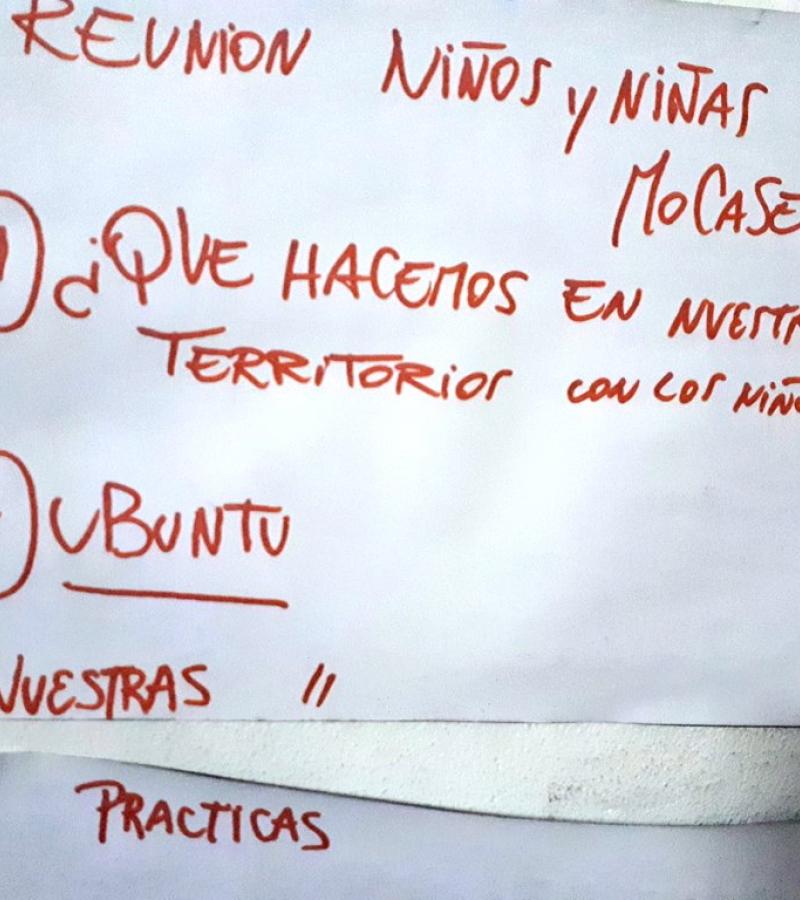 REUNION NIÑOS y NIÑAS
MOCASE
1) ¿QUE HACEMOS EN NUESTR
TERRITORIOS CON LOS NIÑO
) UBUNTU
NUESTRAS "
PRACTICAS